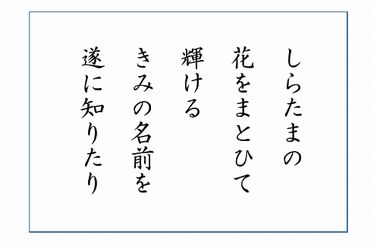 しらたまの
花をまとひて
輝ける
きみの名前を
遂に知りたり